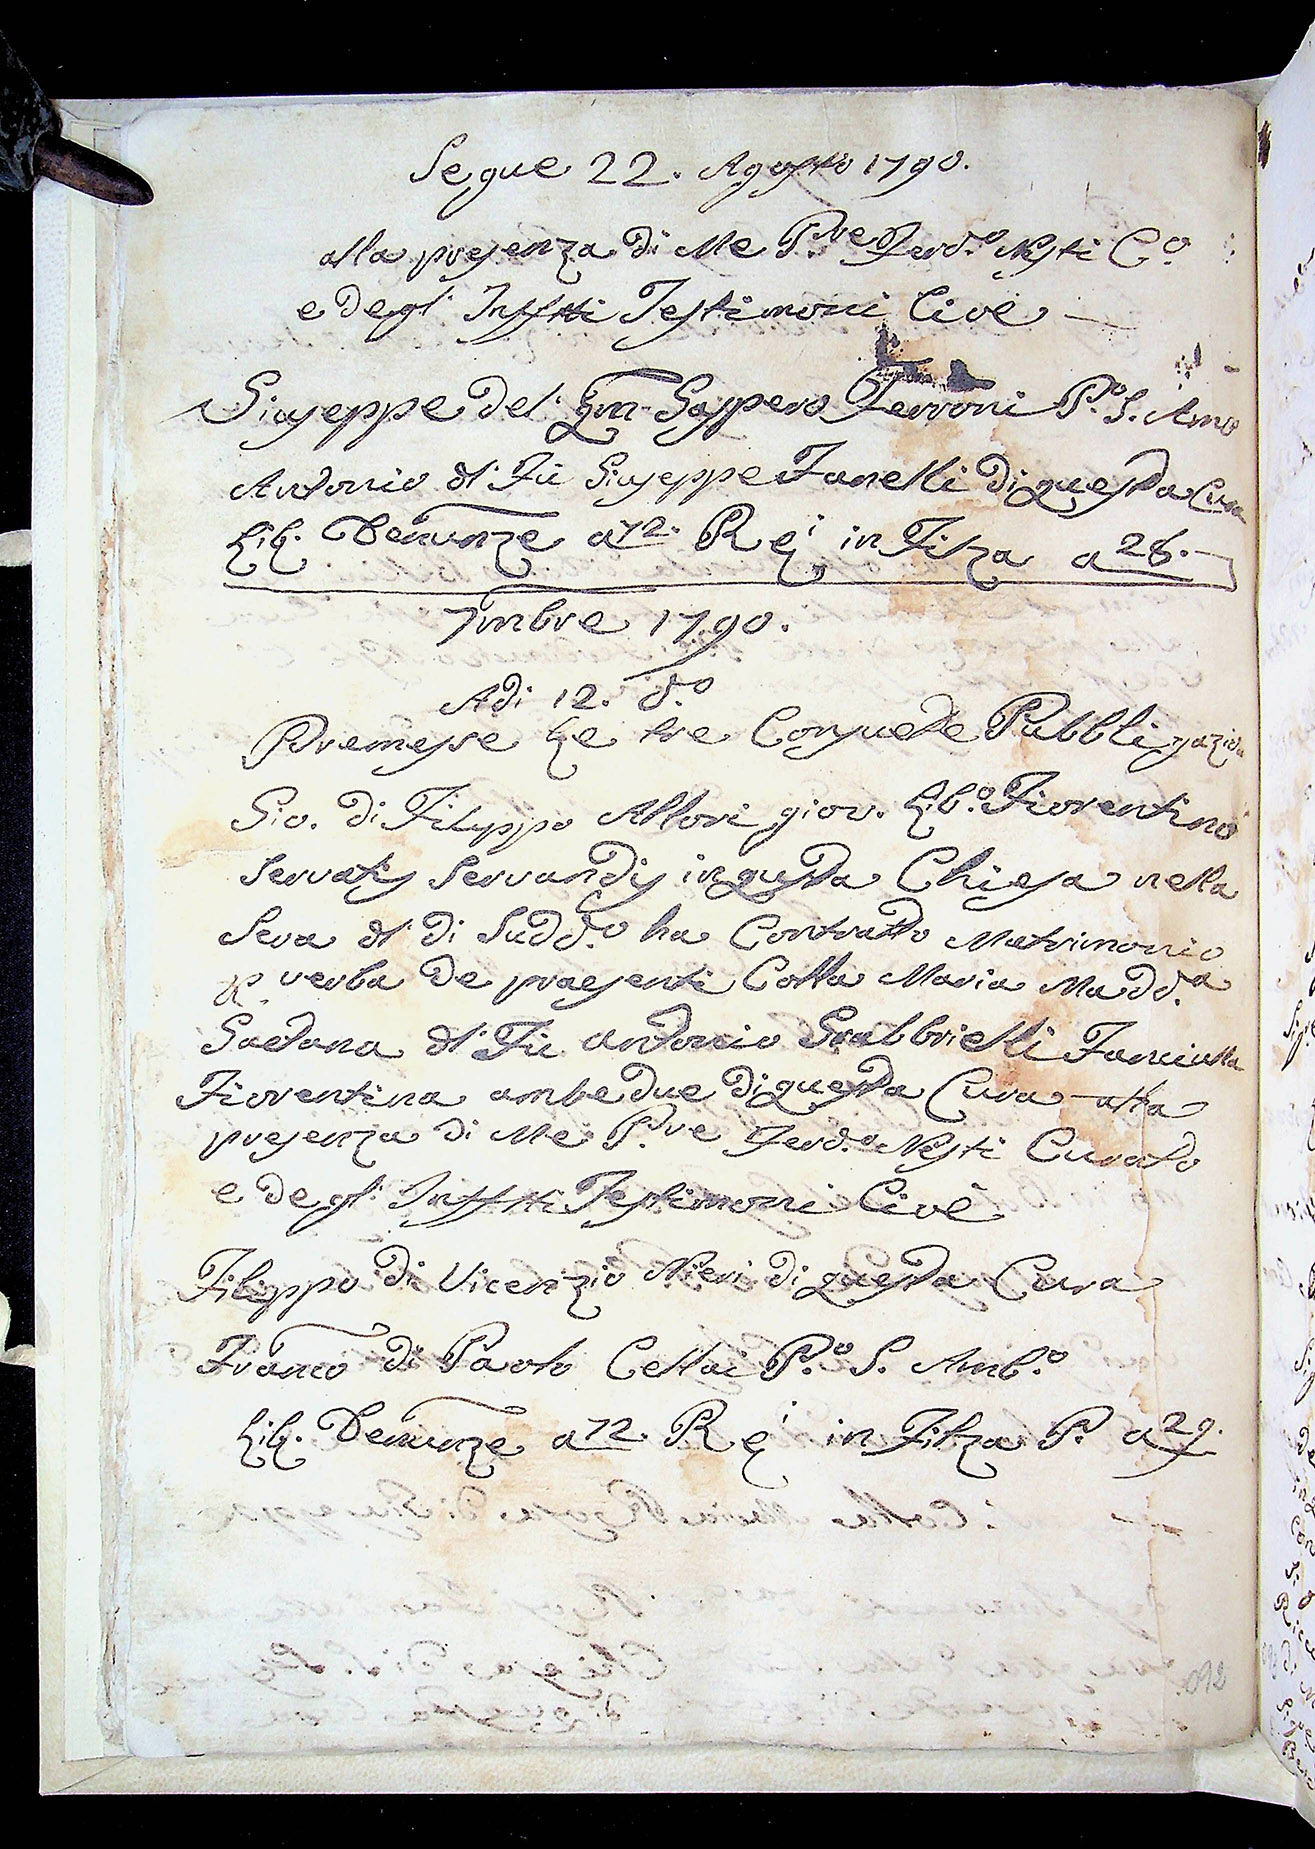 Segue 22. Agosto 1790.
alla presenza di Me P.re Ferd.o Nesti C.o
e degl' Inffsti Testimoni Cioè
Giuseppe del Qm Gasppero Ferroni P.o S. Amo
Antonio dl' Fù Giuseppe Fanelli di questa Cura
Lib. Denunze a 72. R e' in Filza a 28.
7mbre 1790.
Adi 12. d.o
Premesse Le tre Consuete Pubbligazio
Gio. di Filippo Allori giov. Lib.o Fiorentino
Servatis Servandis in qusta Chiesa nella
Sera dl' di Sudd.o ha Contratto Matrimonio
P. verba de praesenti Colla Maria Madd.a
Gaetana dl' Fù Antonio Grabbrielli Fanciulla
Fiorentina ambedue di questa Cura alla
presenza di Me P.re Ferd.o Nesti Curato
e degl' Inffsti Testimoni Cioè
Filippo di Vicenzio Nieri di questa Cura
Franco di Paolo Cellai P.o S. Amb.o
Lib. Denunze a 72. R e' in Filza P. a 29.